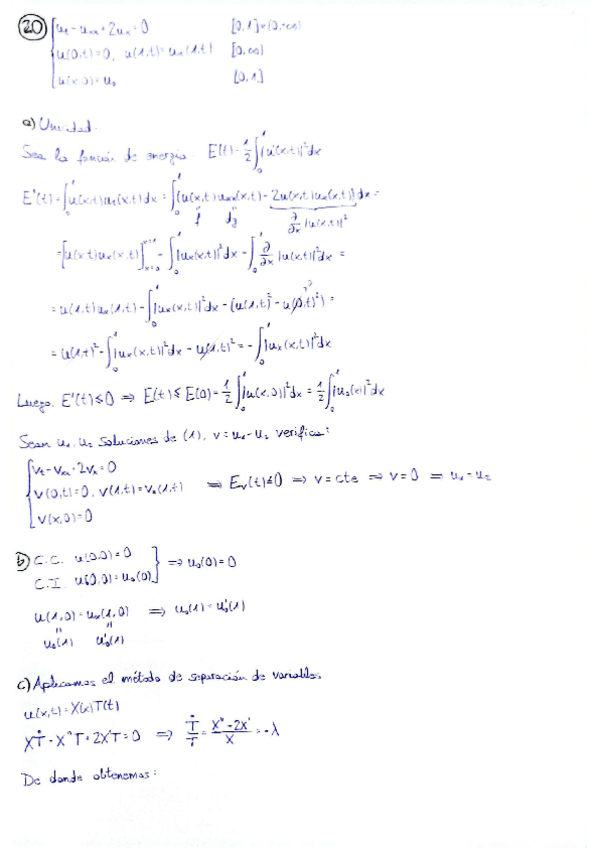 20 { u_t - u_xx + 2u_x = 0 [0,1]×(0,∞)
u(0,t)=0, u(1,t)=u_x(1,t) [0,∞)
u(x,0)=u_0 [0,1]
a) Unicidad.
Sea la función de energía E(t)=1/2 ∫_0^1 |u(x,t)|^2 dx
E'(t)=∫_0^1 u(x,t)u_t(x,t)dx = ∫_0^1 (u(x,t)u_xx(x,t) - 2u(x,t)u_x(x,t))dx =
f dg ∂/∂x |u(x,t)|^2
=[u(x,t)u_x(x,t)]_{x=0}^{x=1} - ∫_0^1 |u_x(x,t)|^2 dx - ∫_0^1 ∂/∂x |u(x,t)|^2 dx =
= u(1,t)u_x(1,t) - ∫_0^1 |u_x(x,t)|^2 dx - (u(1,t)^2 - u(0,t)^2) =
= u(1,t)^2 - ∫_0^1 |u_x(x,t)|^2 dx - u(1,t)^2 = - ∫_0^1 |u_x(x,t)|^2 dx
Luego, E'(t)≤0 ⇒ E(t)≤E(0)=1/2 ∫_0^1 |u(x,0)|^2 dx = 1/2 ∫_0^1 |u_0(x)|^2 dx
Sean u_1, u_2 soluciones de (1), v=u_1-u_2 verifica:
{ v_t - v_xx + 2v_x = 0
v(0,t)=0, v(1,t)=v_x(1,t) ⇒ E_v(t)≤0 ⇒ v=cte ⇒ v=0 ⇒ u_1=u_2
v(x,0)=0
b) C.C. u(0,0)=0
C.I. u(0,0)=u_0(0) } ⇒ u_0(0)=0
u(1,0)=u_x(1,0) ⇒ u_0(1)=u_0'(1)
u_0(1) u_0'(1)
c) Aplicamos el método de separación de variables
u(x,t)=X(x)T(t)
XṪ - X''T + 2X'T = 0 ⇒ Ṫ/T = (X''-2X')/X = -λ
De donde obtenemos: